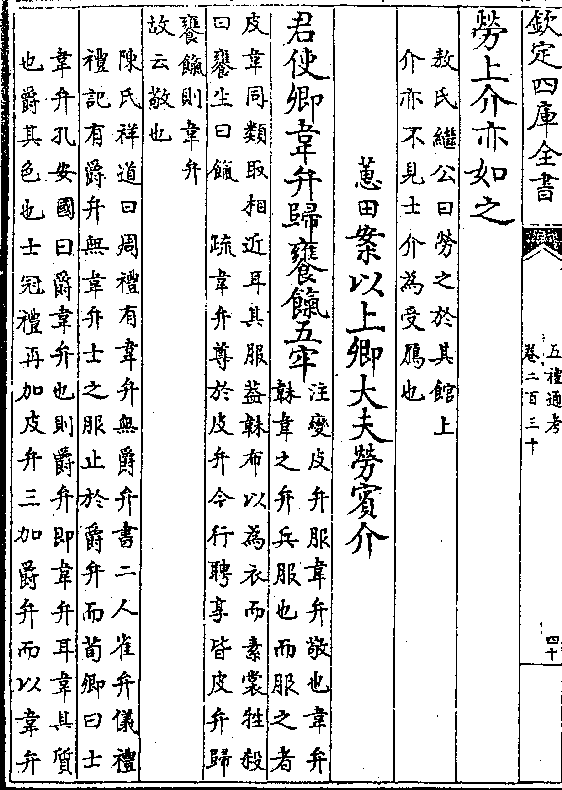 欽定四庫全書
五禮通考
卷二百三十
四十
勞上介亦如之
敖氏繼公曰勞之於其館上
介亦不見士介為受鴈也
蕙田案以上卿大夫勞賓介
君使卿韋弁歸饔餼五牢
注變皮弁服韋弁敬也韋弁
韎韋之弁兵服也而服之者
皮韋同類取相近耳其服蓋韎布以為衣而素裳牲殺
曰饔生曰餼 疏韋弁尊於皮弁今行聘享皆皮弁歸
饔餼則韋弁
故云敬也
陳氏祥道曰周禮有韋弁無爵弁書二人雀弁儀禮
禮記有爵弁無韋弁士之服止於爵弁而荀卿曰士
韋弁孔安國曰爵韋弁也則爵弁即韋弁耳韋其質
也爵其色也士冠禮再加皮弁三加爵弁而以韋弁